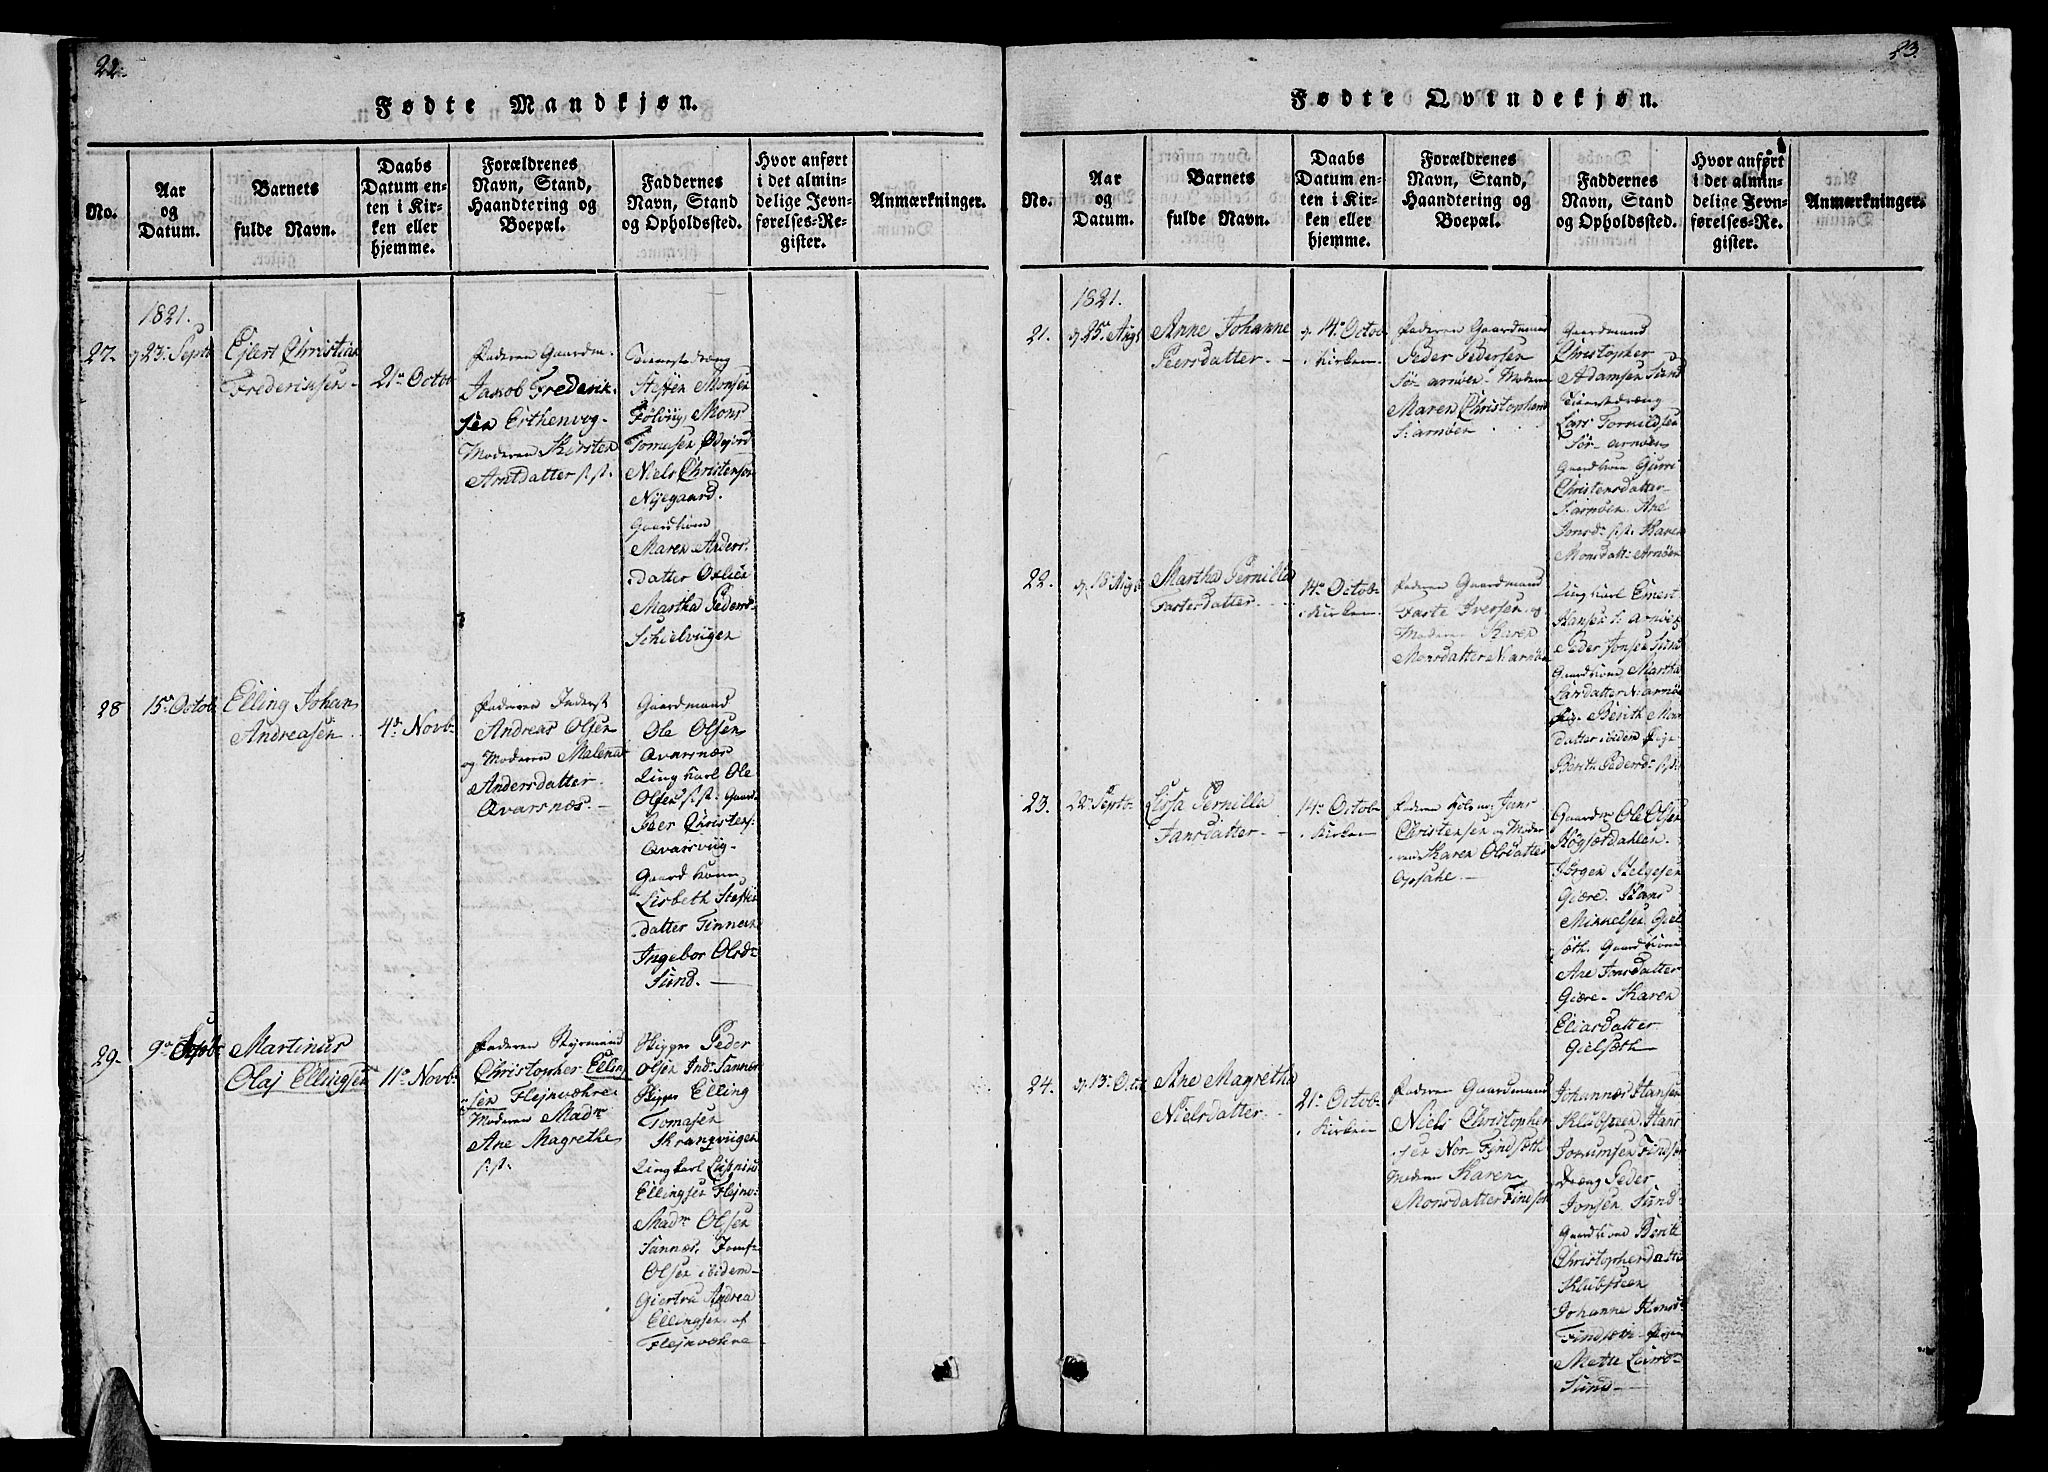 22.
Fødte Mandkjøn.
No.
Aar
og
Datum.
Barnets
fulde Navn.
Daabs
Datum en-
ten i Kir-
ken eller
hjemme.
Forældrenes
Navn, Stand,
Haandtering og
Boepæl.
Faddernes
Navn, Stand
og Opholdssted.
Hvor anført
i det almin-
delige Jevn-
førelses-Re-
gister.
Anmærkninger.
1821.
27.
23. Septb
Ejlert Christian
Fredericksen
21de Octob
Faderen Gaardm.
Jakob Frederik-
sen Erthenvog-
Moderen Kirsten
Arntdatter s. st.
Tienestedræng
Steffen Monsen
Fölviig, Mons
Tomasen Ødegord
Niels Christensen
Nyegaard.
Gaardkone
Maren Anders-
datter Oxlien
Martha Peders-
Schielviigen
28
15de Octob.
Elling Johan
Andreasen
4de Novb.
Faderen Inderst
Andreas Olsen
og Moderen Malena
Andersdatter
Avarsnæs.
Gaardmand
Ole Olsen
Avarsnæs
Ung Karl Ole
Olsen s. st. Gaard-
Peer Christens:
Avarsviig-
Gaardkone
Lisbeth Steffen
datter Finnens
Ingebor Olsd-
Sund.
29.
9de Septb.
Martinus
Olaj Ellingsen
11te Novb.
Faderen Styrmand
Christopher Elling
sen Flejnværre
Moderen Madm
Ane Magrethe
s. st.
Skipper Peder
Olsen Ind. Sannæs
Skipper Elling
Tomasen
Skrangviigen
Ung Karl
Ellingsen Flejnv:
Madm Olsen
Sannæs. Jomf-
Olsen ibidem-
Giertru Andrea
Ellingsen. af
Flejnværre
23.
Fødte Qvindekjøn.
No.
Aar
og
Datum.
Barnets
fulde Navn.
Daabs
Datum en-
ten i Kir-
ken eller
hjemme.
Forældrenes
Navn, Stand,
Haandtering og
Boepæl.
Faddernes
Navn, Stand
og Opholdssted.
Hvor anført
i det almin-
delige Jevn-
førelses-Re-
gister.
Anmærkninger.
1821.
21.
25de Augs
Anne Johanne
Peersdatter
14de Octob
i Kirken
Faderen Gaardmand
Peder Pedersen
Sør arnøen. Moderen
Maren Christophersd
S: arnøen
Gaardmand
Christopher
Adamsen Sund
Tienestedræng
Lars Tornildsen
Sør arnøen
Gaardkone Gurri
Christensdatter
S: arnøen. Ane
Jonsd: s. st. Karen
Monsdatt: Arnøen
22.
18de Augs
Martha Pernilla
Fartesdatter
14de Octob
i Kirken
Faderen Gaardmand
Farte Iversen og
Moderen Karen
Monsdatter N: arnøen
Ung Karl Emert
Hansen S: arnøen
Peder Jonsen Sund
Gaardkone Martha
Larsdatter N: arnøe
Pig. Berith Mons
datter ibidem Pige
Berith Pedersd: s. st.
23.
22de Septb.
Lissa Pernilla
Jansdatter
14de Octob
i Kirken
Faderen Jans
Christensen og Moder
en Karen Olsdatter
Opsahl.
Gaardm Ole Olsen
Høgsætdahlen.
Jörgen Helgesen
Giære. Hans
Mikkelsen Giel
sæth. Gaardkone
Ane Jonsdatter
Giære. Karen
Eliasdatter
Gielsæth
24.
13de Oct.
Ane Magretha
Nielsdatter
21de Octob
i Kirken
Faderen Gaardmand
Niels Christopher
sen Nor Findsæth
Moderen Karen
Monsdatter Findset
Johannes Hansen
Klubsteen. Hans
Jorumsen Findsæ
Dræng Peder
Jonsen Sund-
Gaardkone Berit
Christophersdatt
Klubsteen
Johanne Hansd:
Findsæth. Pigen
Mette Larsd-
Sund